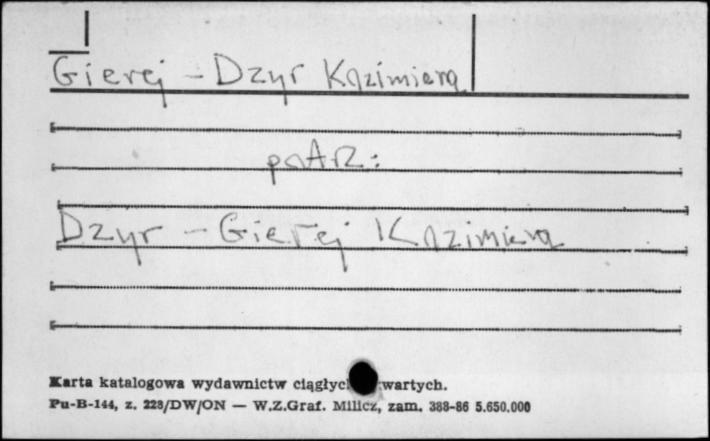 Gierej - Dzyr Kazimiera
patrz:
Dzyr - Gierej Kazimiera
Karta katalogowa wydawnictw ciągłyc wartych.
Pu-B-144, z. 228/DW/ON — W.Z.Graf. Milicz, zam. 388-86 5.650.000